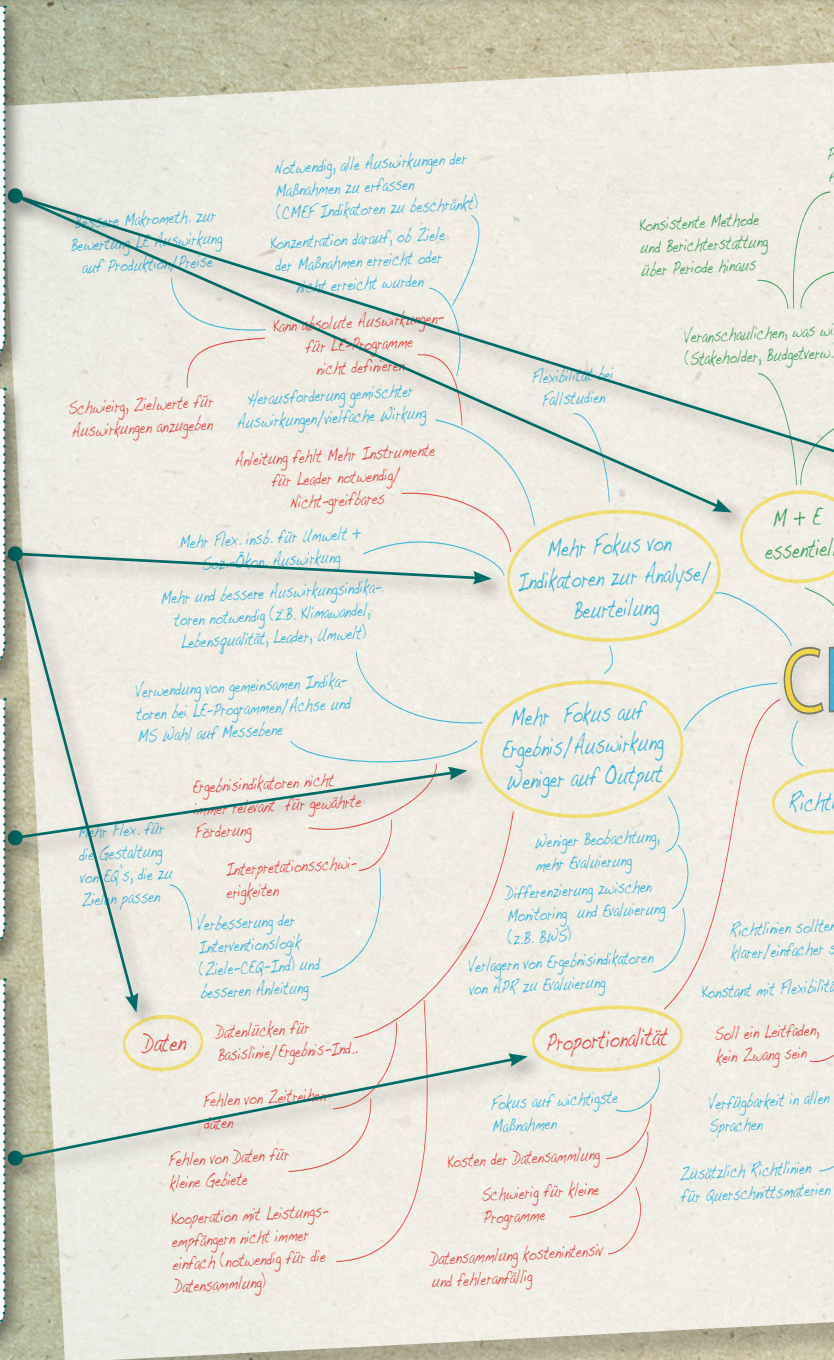 Notwendig, alle Auswirkungen der
Maßnahmen zu erfassen
(CMEF Indikatoren zu beschränkt)
Bessere Makrometh. zur
Bewertung LE Auswirkung
auf Produktion/Preise
Konzentration darauf, ob Ziele
der Maßnahmen erreicht oder
nicht erreicht wurden
Kann absolute Auswirkungen-
für LE-Programme
nicht definieren
Schwieirg, Zielwerte für
Auswirkungen anzugeben
Herausforderung gemischter
Auswirkungen/vielfache Wirkung
Anleitung fehlt Mehr Instrumente
für Leader notwendig/
Nicht-greifbares
Flexibilität bei
Fallstudien
Konsistente Methode
und Berichterstattung
über Periode hinaus
Veranschaulichen, was
(Stakeholder, Budgetverw.
M + E
essentiell
Mehr Flex. insb. für Umwelt +
Soz-Ökon. Auswirkung
Mehr und bessere Auswirkungsindika-
toren notwendig (z.B. Klimawandel,
Lebensqualität, Leader, Umwelt)
Verwendung von gemeinsamen Indika-
toren bei LE-Programmen/Achse und
MS Wahl auf Messebene
Mehr Fokus von
Indikatoren zur Analyse/
Beurteilung
Mehr Fokus auf
Ergebnis/Auswirkung
Weniger auf Output
Ergebnisindikatoren nicht
immer relevant für gewährte
Förderung
Mehr Flex. für
die Gestaltung
von EQ's, die zu
Zielen passen
Interpretationsschwi-
erigkeiten
Verbesserung der
Interventionslogik
(Ziele-CEQ-Ind) und
besseren Anleitung
Weniger Beobachtung,
mehr Evaluierung
Differenzierung zwischen
Monitoring und Evaluierung
(z.B. BWS)
Verlagern von Ergebnisindikatoren
von APR zu Evaluierung
Daten
Datenlücken für
Basislinie/Ergebnis-Ind..
Fehlen von Zeitreihen
daten
Fehlen von Daten für
kleine Gebiete
Kooperation mit Leistungs-
empfängern nicht immer
einfach (notwendig für die
Datensammlung)
Proportionalität
Fokus auf wichtigste
Maßnahmen
Kosten der Datensammlung
Schwierig für kleine
Programme
Datensammlung kostenintensiv
und fehleranfällig
Richtlinien sollten
klarer/einfacher
Konstant mit
Soll ein Leitfaden,
kein Zwang sein
Verfügbarkeit in allen
Sprachen
Zusätzlich Richtlinien
für Querschnittsmaterien